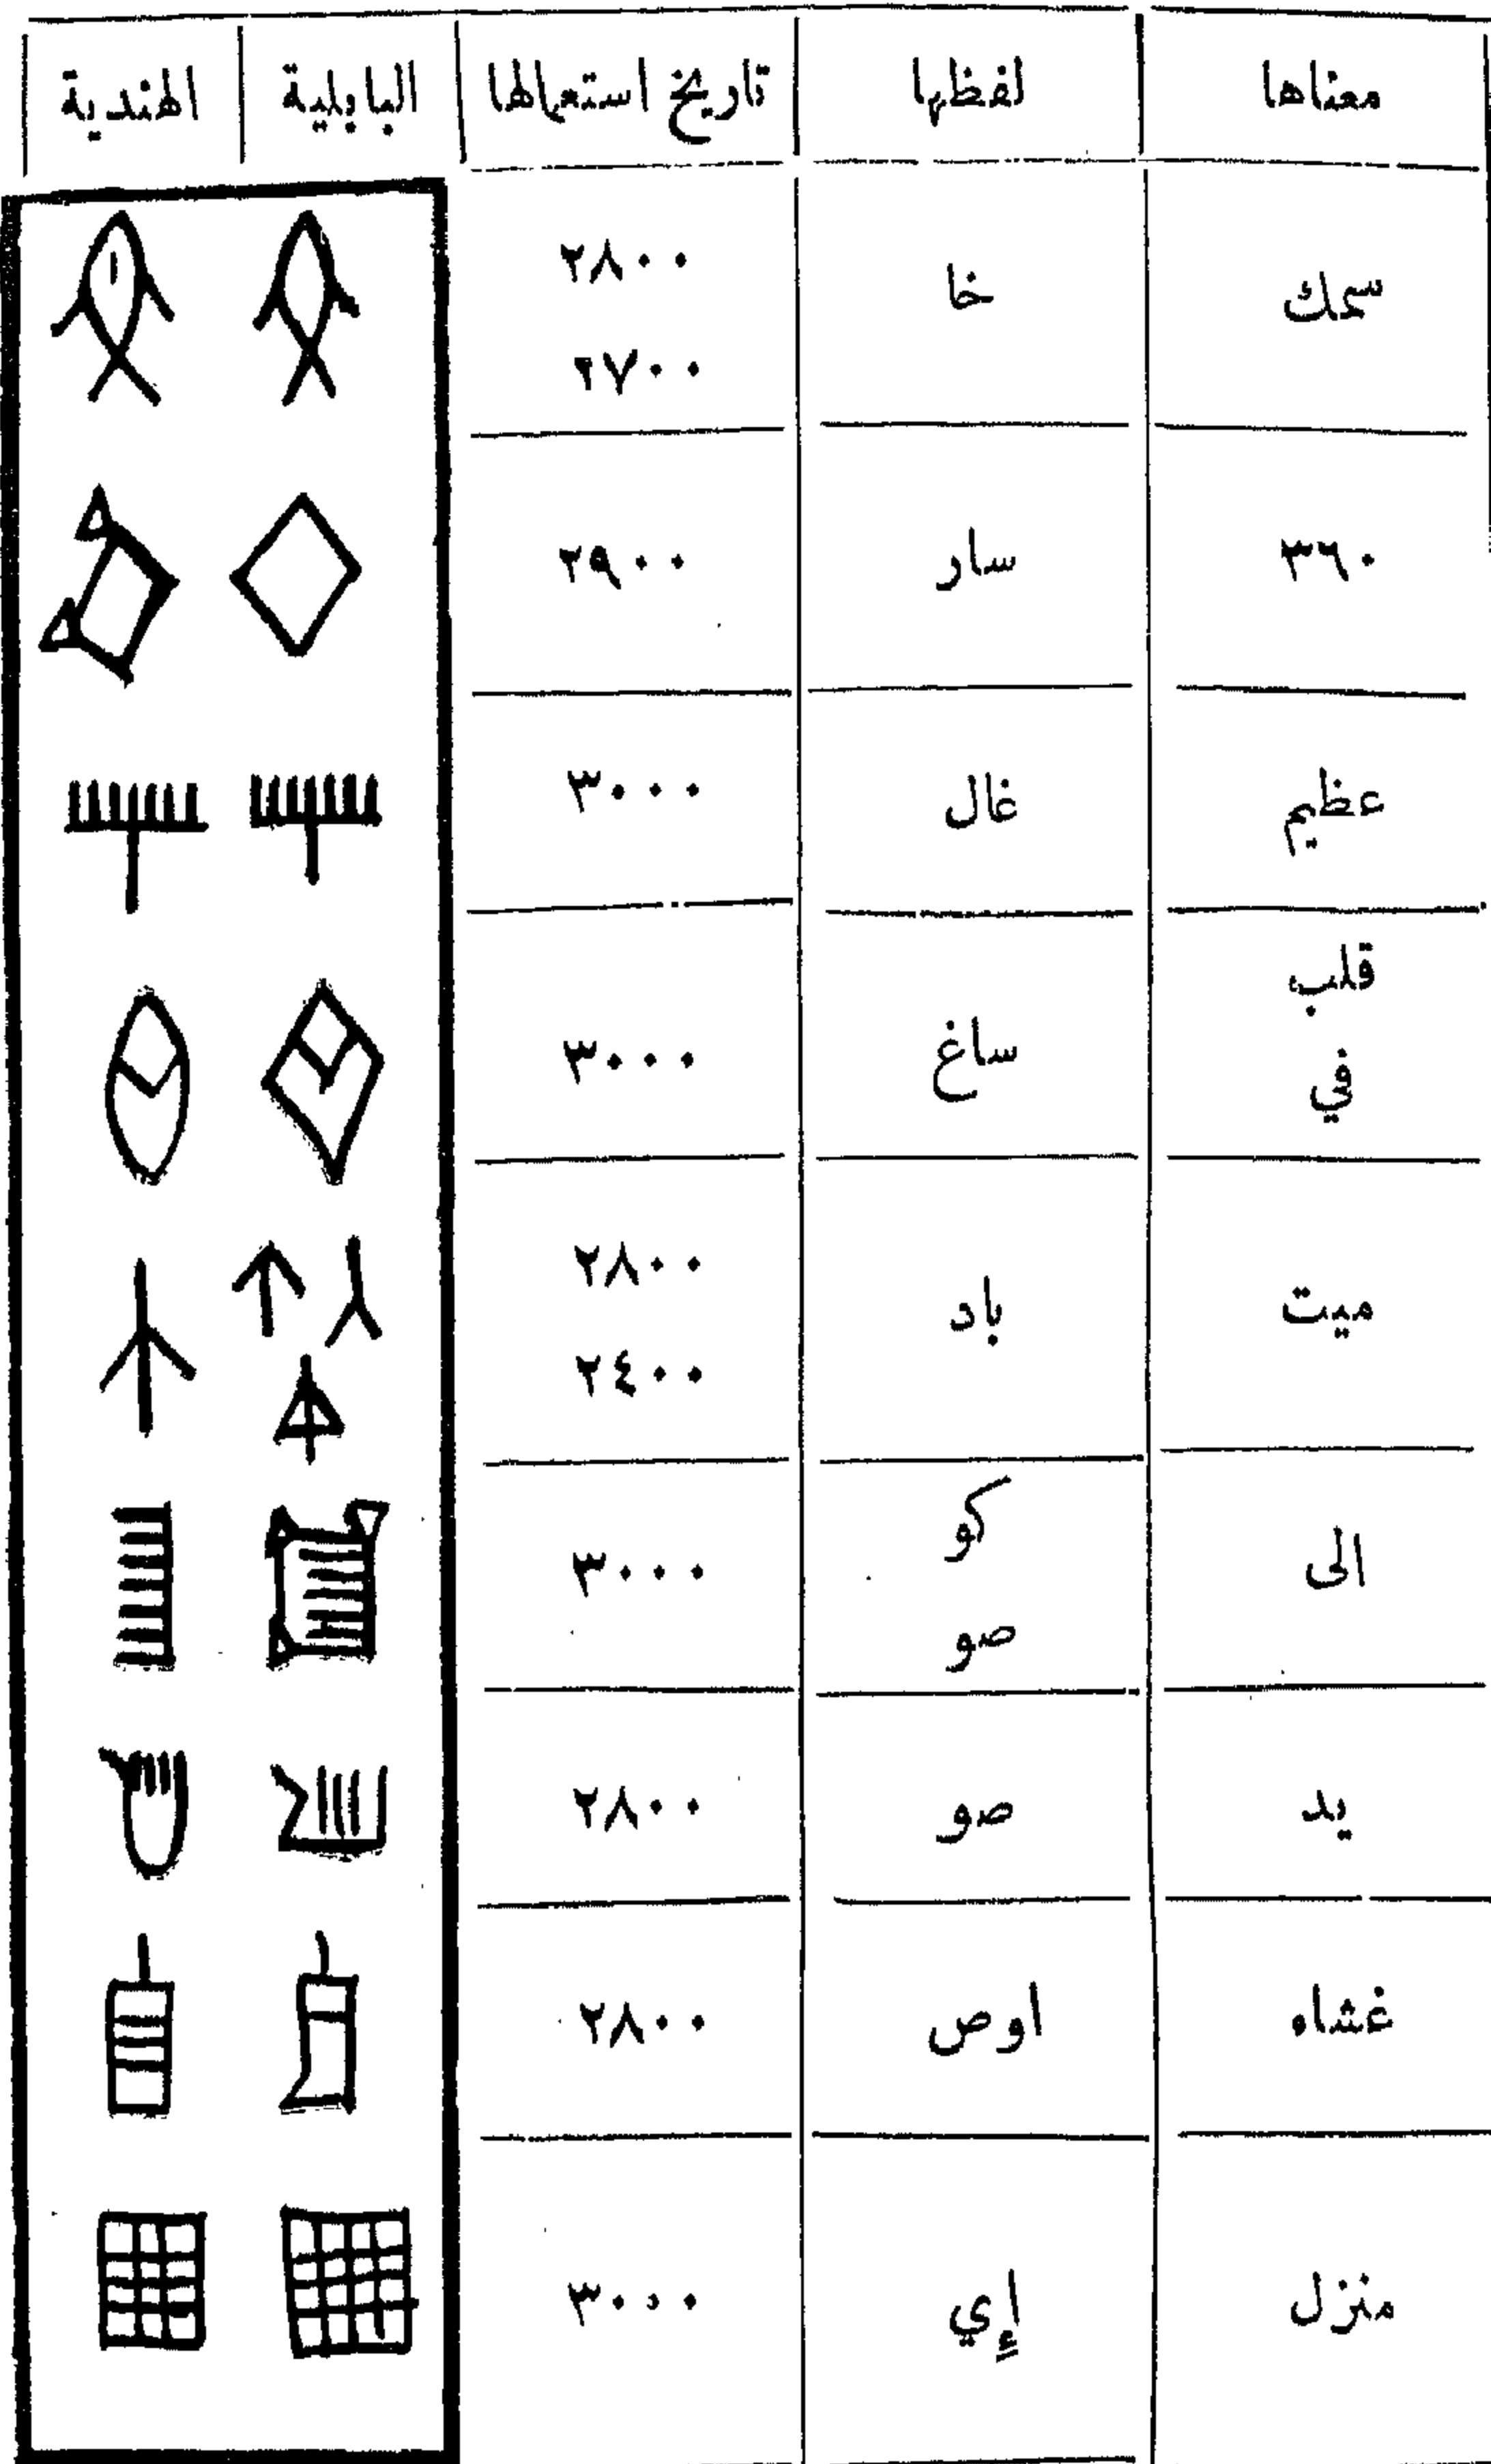 معناها لفظها تاريخ استعمالها البابلية الهندية
سمك خا ٢٨٠٠
٢٧٠٠
٣٦٠ سار ٢٩٠٠
عظيم غال ٣٠٠٠
قلب
في ساغ ٣٠٠٠
ميت باد ٢٨٠٠
٢٤٠٠
الى كو ٣٠٠٠
صو
يد صو ٢٨٠٠
غشاء اوص ٢٨٠٠
منزل إي ٣٠٠٠